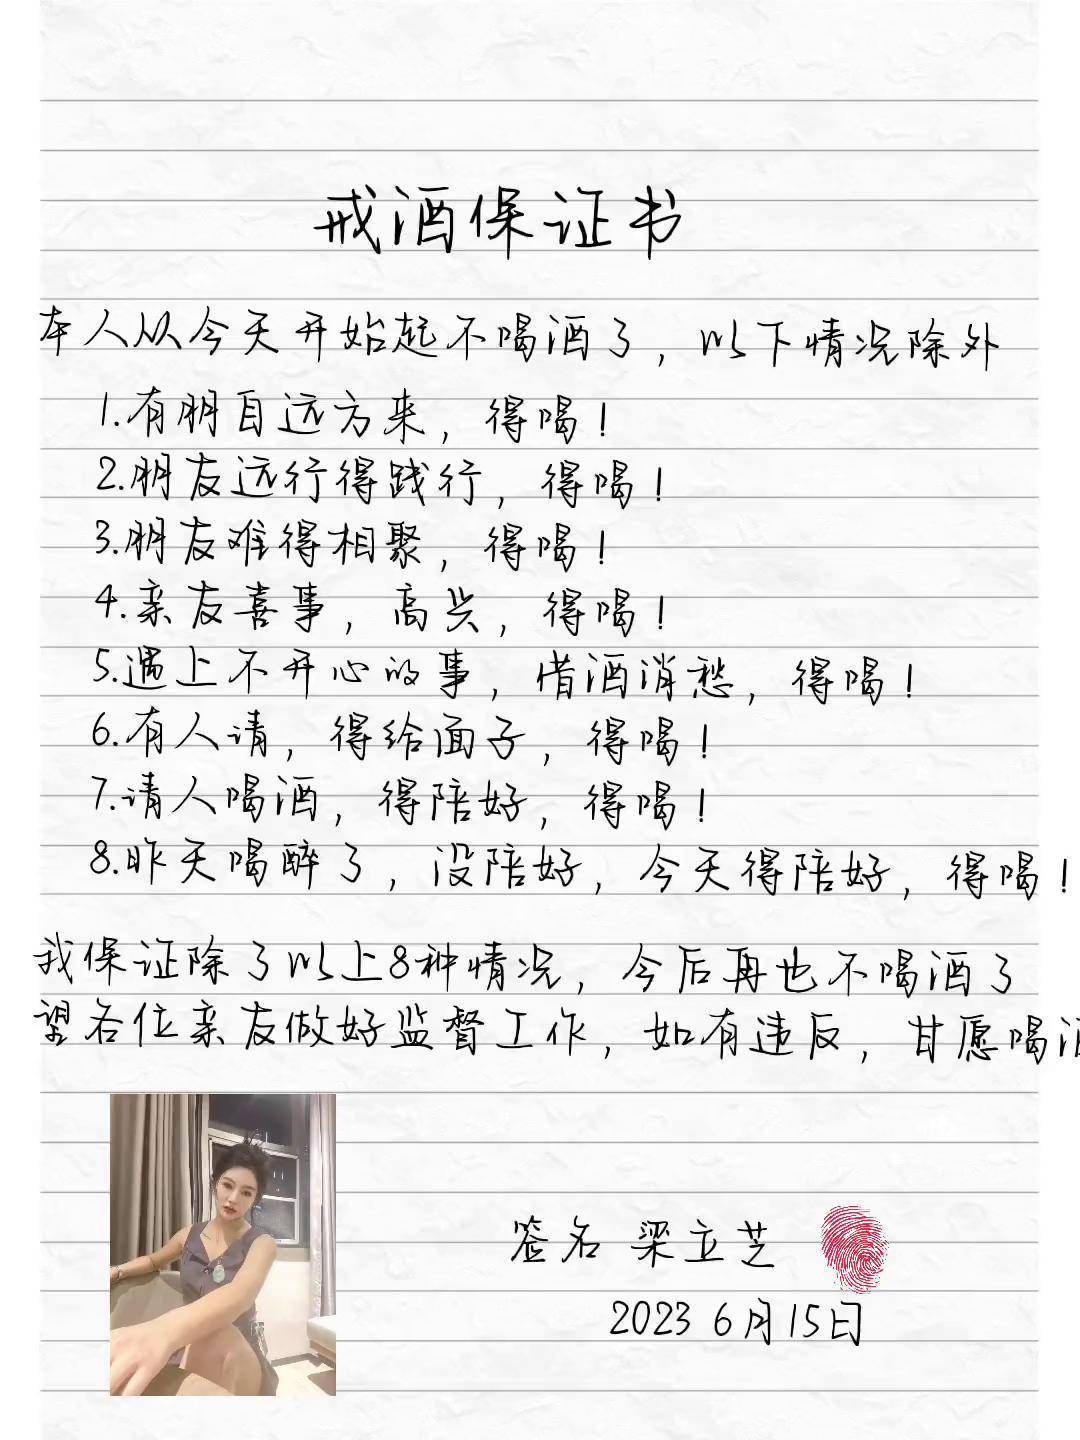 戒酒保证书
本人从今天开始起不喝酒了，以下情况除外
1.有朋自远方来，得喝！
2.朋友远行得践行，得喝！
3.朋友难得相聚，得喝！
4.亲友喜事，高兴，得喝！
5.遇上不开心的事，借酒消愁，得喝！
6.有人请，得给面子，得喝！
7.请人喝酒，得陪好，得喝！
8.昨天喝醉了，没陪好，今天得陪好，得喝！
我保证除了以上8种情况，今后再也不喝酒了
望各位亲友做好监督工作，如有违反，甘愿喝酒
签名 梁立芝
2023 6月15日